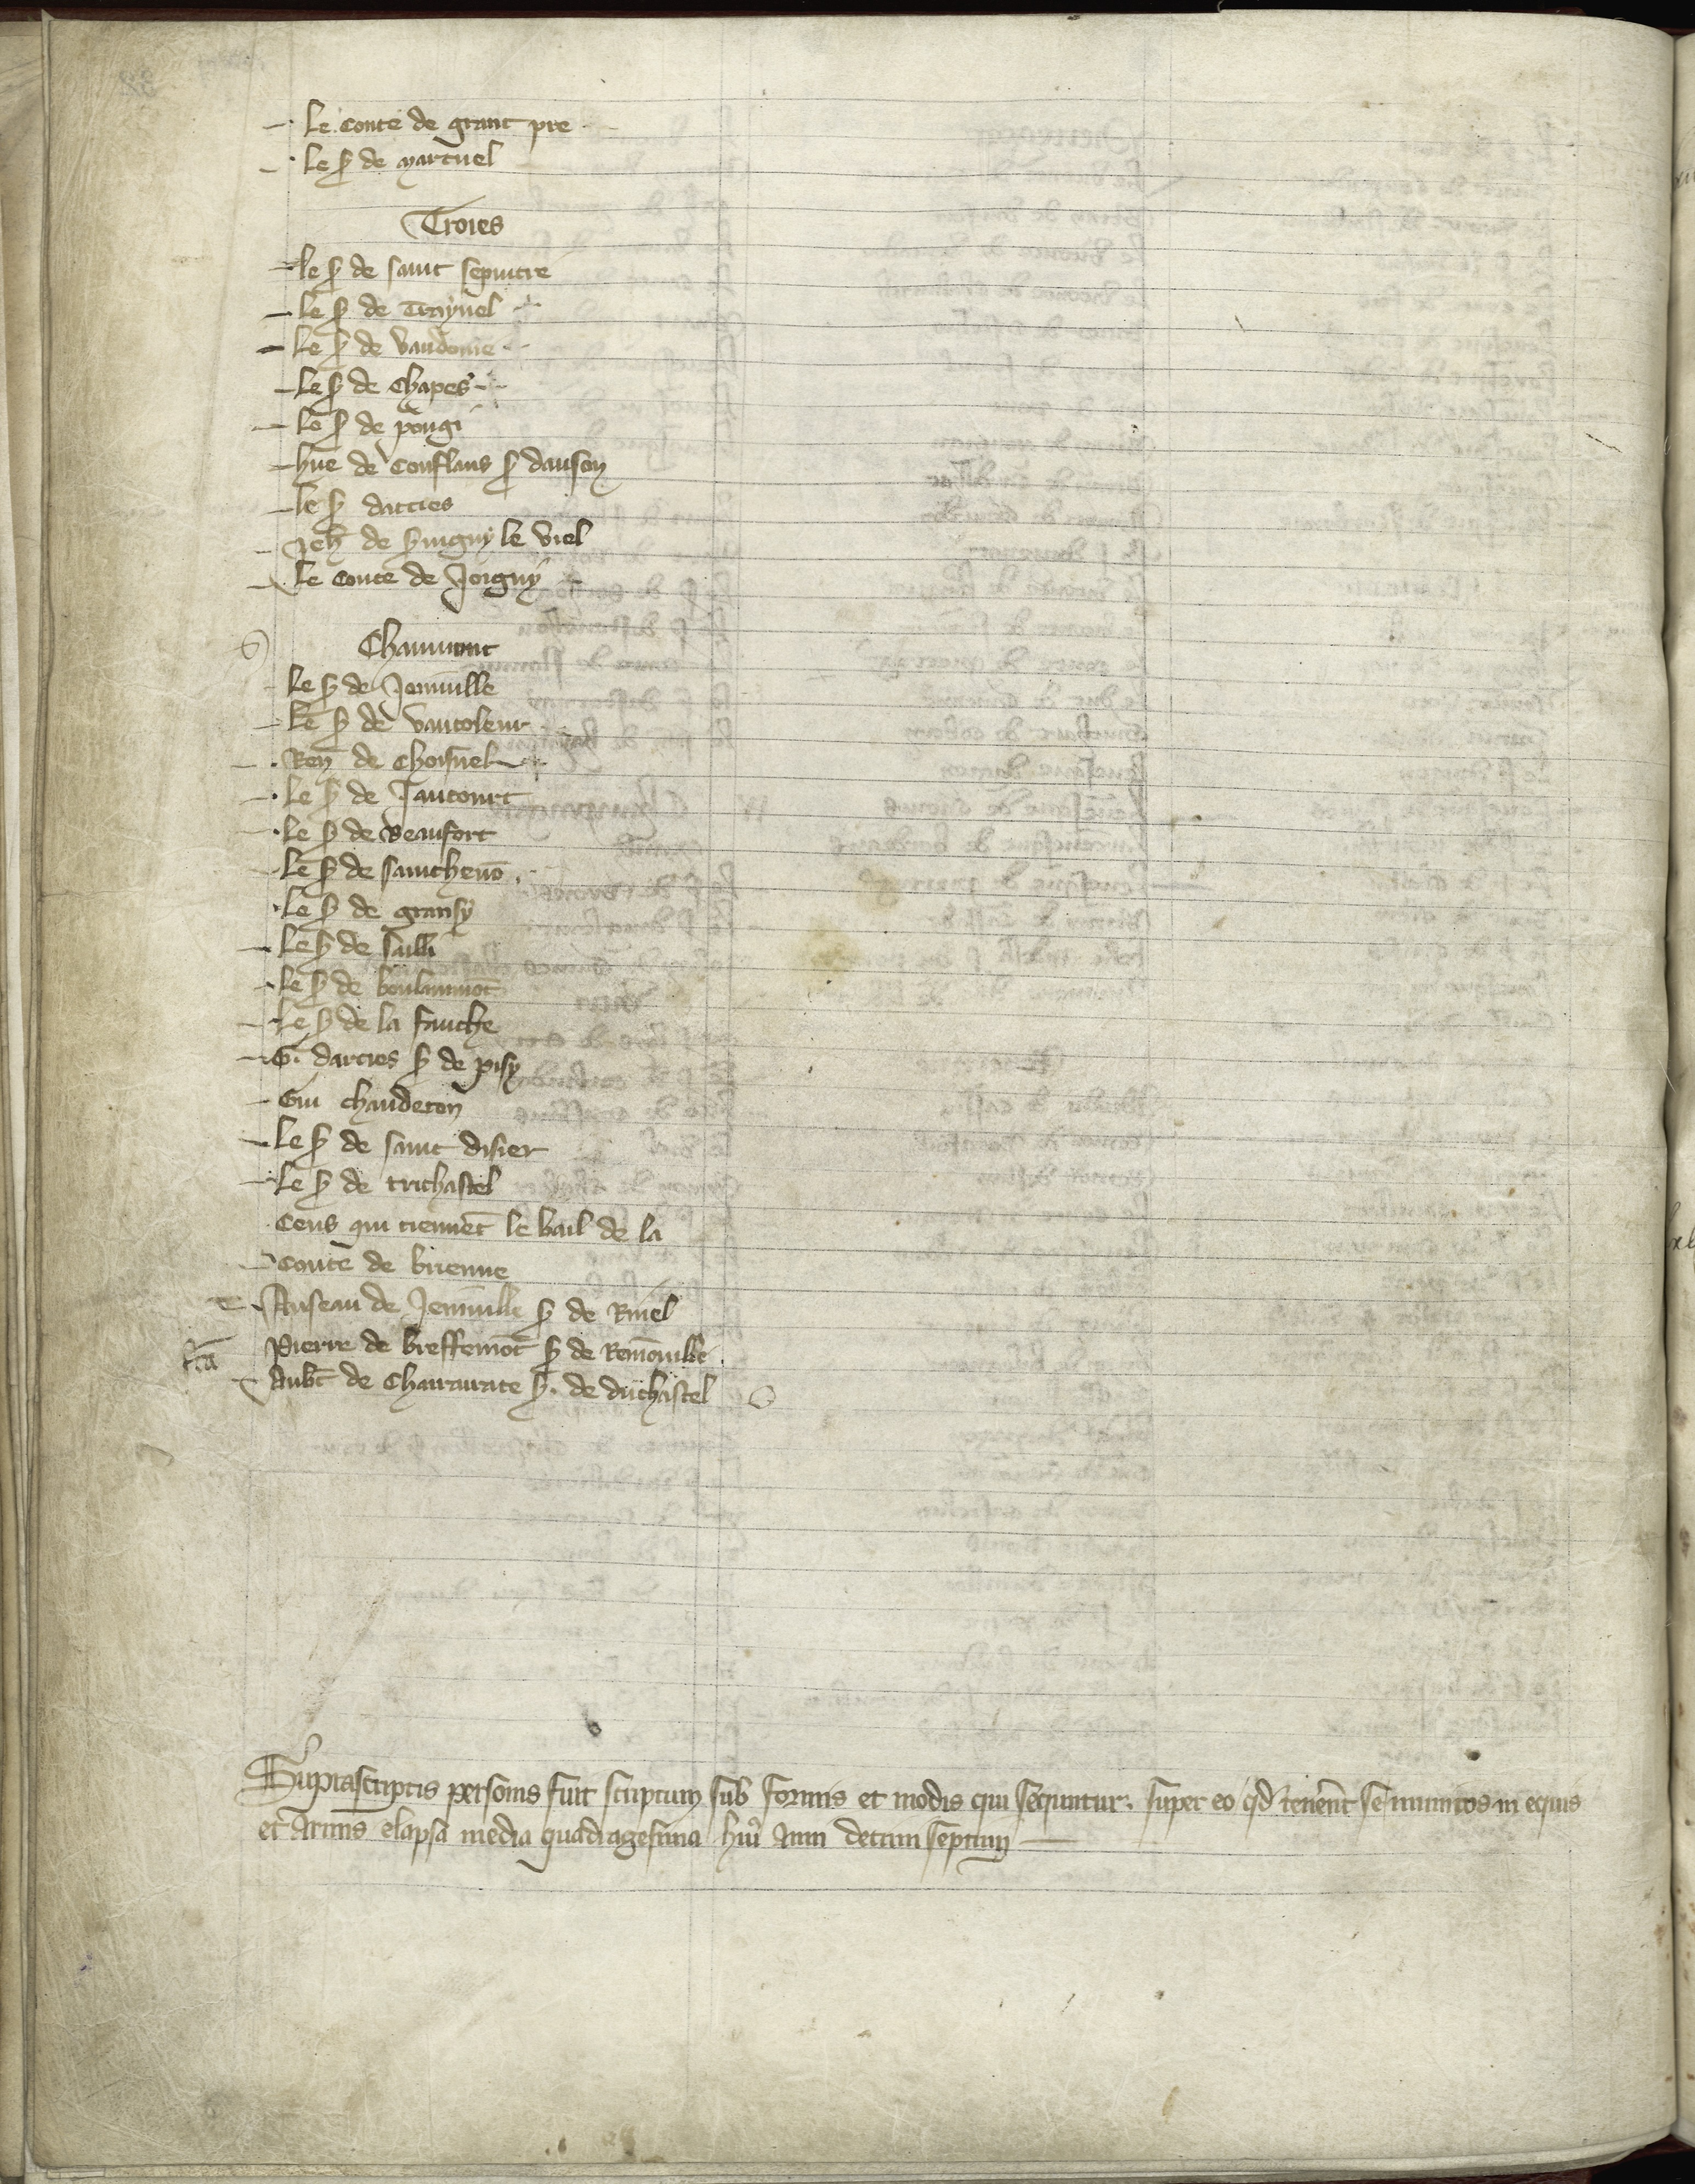 le conte de grant pre
le s de martuel
Troies
le s de saint sepulcre
le s de Traynel
le s de vandome
le s de Chapes
le s de pougi
hue de Conflans s dauson
le s darcies
Jeh de s le viel
le conte de Joigny
Chaumont
le s de Joinville
le s de vaucoleur
Ren de Choisuel
le s de Jaucourt
le s de Beaufort
le s de saintheno
le s de gransy
le s de sailli
le s de boulainmot
le s de la fauche
G. darcies s de pisy
Gui chauderon
le s de saint disier
le s de trichastel
Ceus qui tiennet le bail de la
conte de brienne
Anseau de Jenville s de Rinel
Pierre de breffemot s de Removille
Aubt de s. de duchastel
Suprascriptis personis fuit scriptum sub formis et modis qui sequntur. super eo qd tenent se munitos in equis
et armis elapsa media quadragesima huius anni decimi septimi